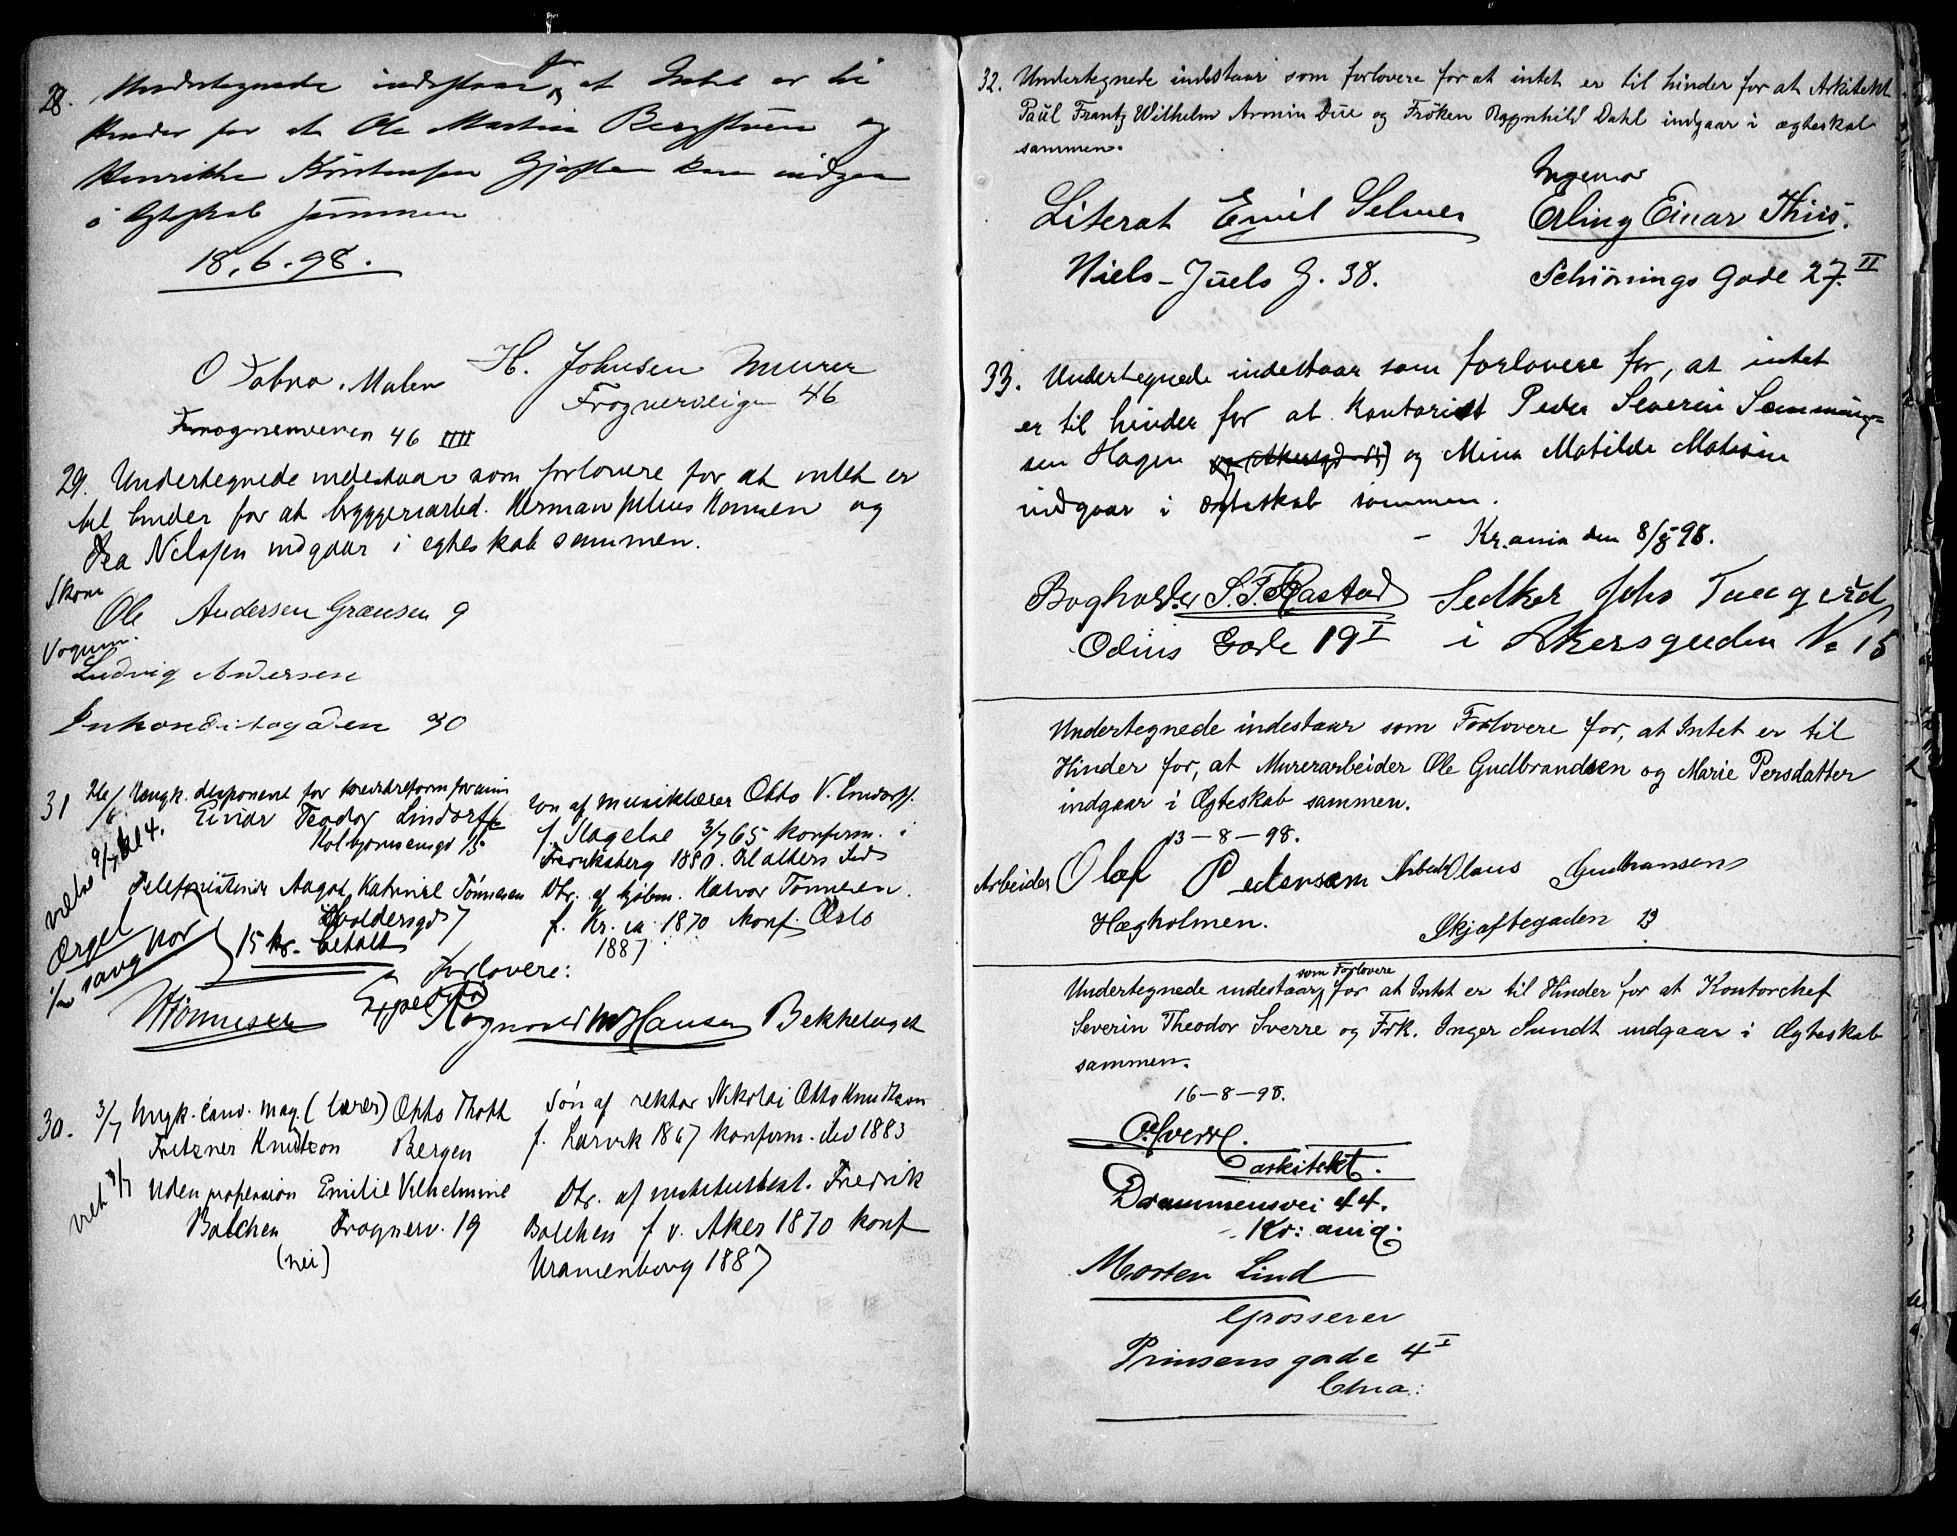 28. Undertegnede indestaar for at Intet er til
Hinder for at Ole Martin Bergstrøm og
Henrikke Kristensen Gjesten kan indgaa
i Egteskab sammen
18.6.98.
O Tobro. Maler
H. Johnsen Murer
Frognerveien 46 IIII
Frognerveien 46
29. Undertegnede indestaar som forlovere for at intet er
til hinder for at bryggeriarbd. Herman Julius Hansen og
Nilsen indgaar i egteskab sammen.
Skom
Ole Andersen Grænsen 9
Vognm.
Ludvig Andersen
30
31 26/6 Ungk. disponent for kreditreformforenin
Einar Teodor Lindorff
Kolbjørnsensgd 15
søn af musiklærer Otto V. Lindorff.
f. Slagelse 3/7 65 konfirm. i
Fredriksberg 1880.
viet 9/7 kl 4.
Telefonistinde Aagot Katrine Tønnesen
Holdersgd 7
Dtr. af Halvor Tønnesen.
f. Kr.ia 1870 konf. Oslo
1887
Orgel
1/2 sang kor
15 kr. betalt
Forlovere:
HTønnesen
Ragnvald M Hansen Bekkelaget
30. 3/7 Ungk. cand. mag. (lærer) Otto Thott
Fritzner Knudtzon Bergen
Søn af rektor Nikolai Otto Knudtzon
f. Larvik 1867 konfirm. do 1883
viet 7/7
Uden profession Emilie Vilhelmine
Balchen Frognerv. 19
(nei)
Dtr. af institutbest. Fredrik
Balchen f. v. Aker 1870 konf
Uranienborg 1887
32. Undertegnede indestaar som forlovere for at intet er til hinder for at Arkitekt
Paul Frantz Wilhelm Armin Due og Frøken Ragnhild Dahl indgaar i ægteskab
sammen.
Literat Emil Selmer
Niels-Juels G. 38.
Ingeniør
Erling Einar Thiis.
Schiønings Gade 27 II
33. Undertegnede indestaar som forlovere for, at intet
er til hinder for at kontorist Peder Severin Semming-
sen Hagen og Mina Matilde Matisen
indgaar i ægteskab sammen.
- Kr.ania den 8/8 98.
Bogholder S. F. Rastad
Odins Gade 19 I
Sedker Johs Tangerud
i Akersgaden No 15
Undertegnede indestaar som Forlovere for, at Intet er til
Hinder for, at Murerarbeider Ole Gudbrandsen og Marie Persdatter
indgaar i Ægteskab sammen.
13-8-98.
Arbeider Olaf Pedersem
Hægholmen.
Arbeid Claus Gudbransen
Skjaftegaden 13
Undertegnede indestaar som Forlovere for at Intet er til Hinder for at Kontorchef
Severin Theodor Sverre og Frk. Inger Sundt indgaar i Ægteskab
sammen.
16-8-98.
O. Sverre.
arkitekt.
Drammensvei 44.
Kr: ania.
Morten Lind
Grosserer
Prinsens gade 4 I
Chra.